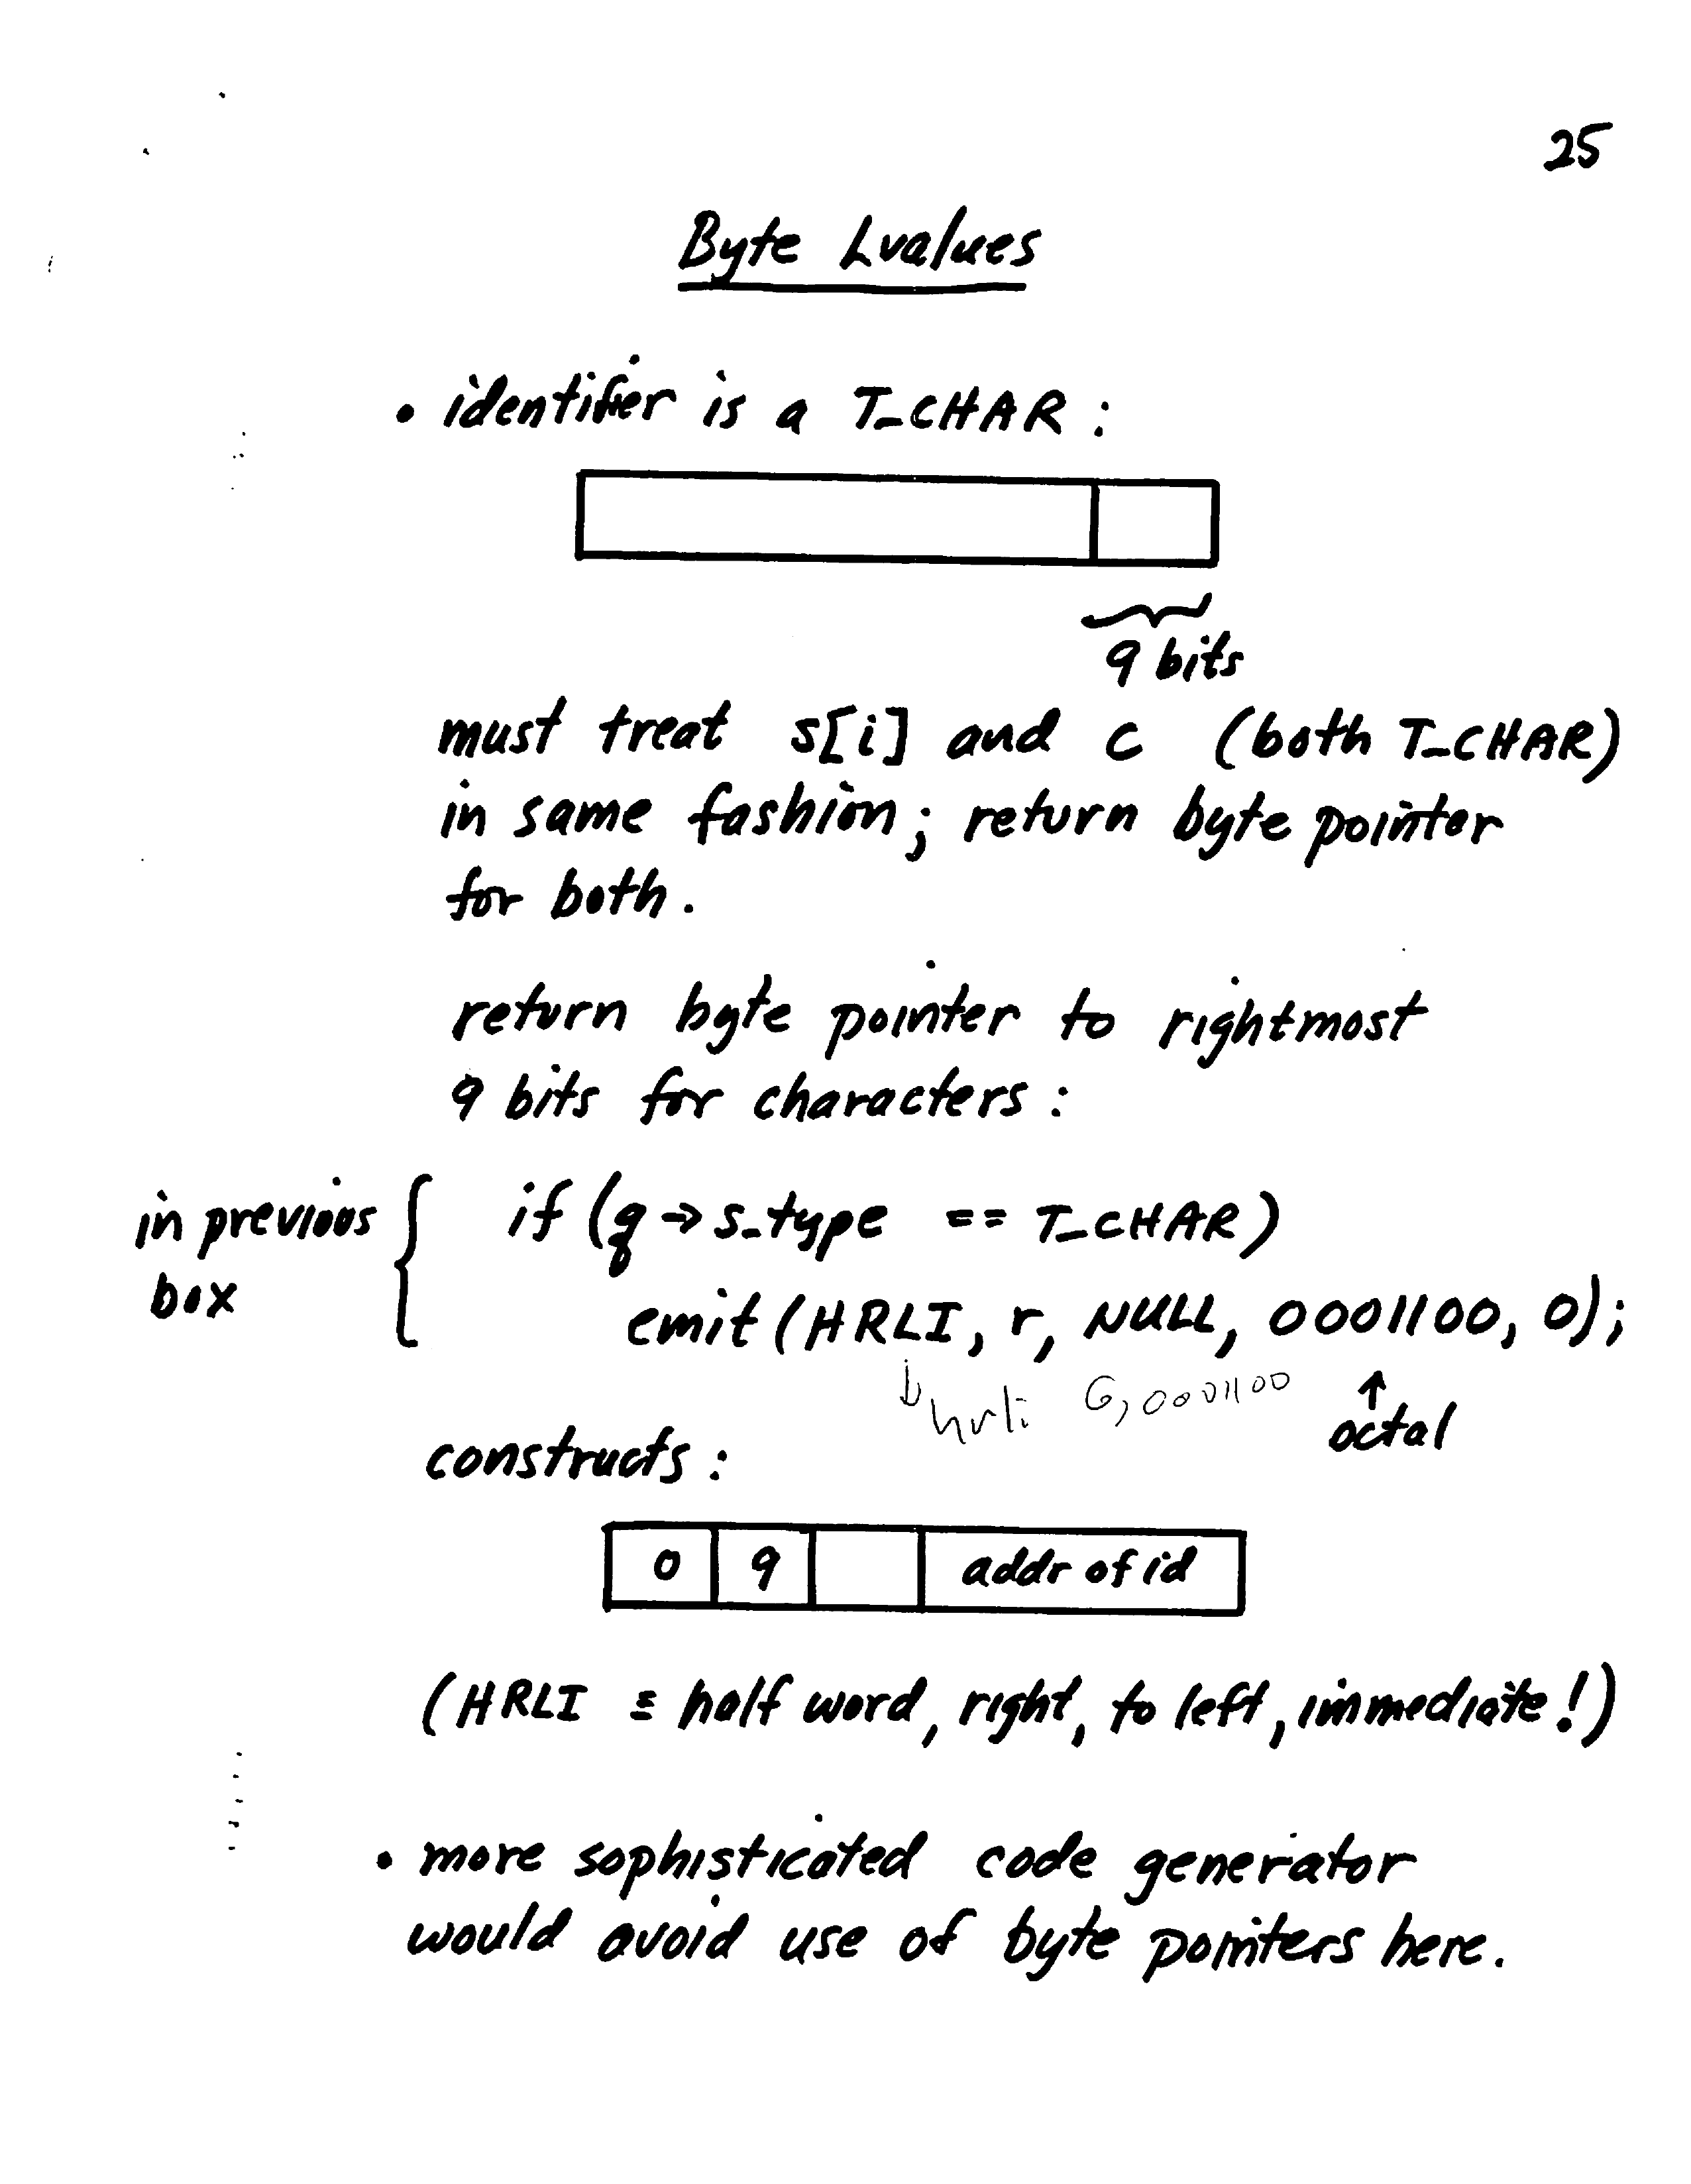 25
Byte Lvalues
• identifier is a T_CHAR :
9 bits
must treat s[i] and c (both T_CHAR)
in same fashion; return byte pointer
for both.
return byte pointer to rightmost
9 bits for characters :
in previous
box
if (q → s_type == T_CHAR)
emit (HRLI, r, NULL, 0001100, 0);
↓ hrli 6,0001100
↑
octal
constructs :
0 9 addr of id
(HRLI ≡ half word, right, to left, immediate!)
• more sophisticated code generator
would avoid use of byte pointers here.